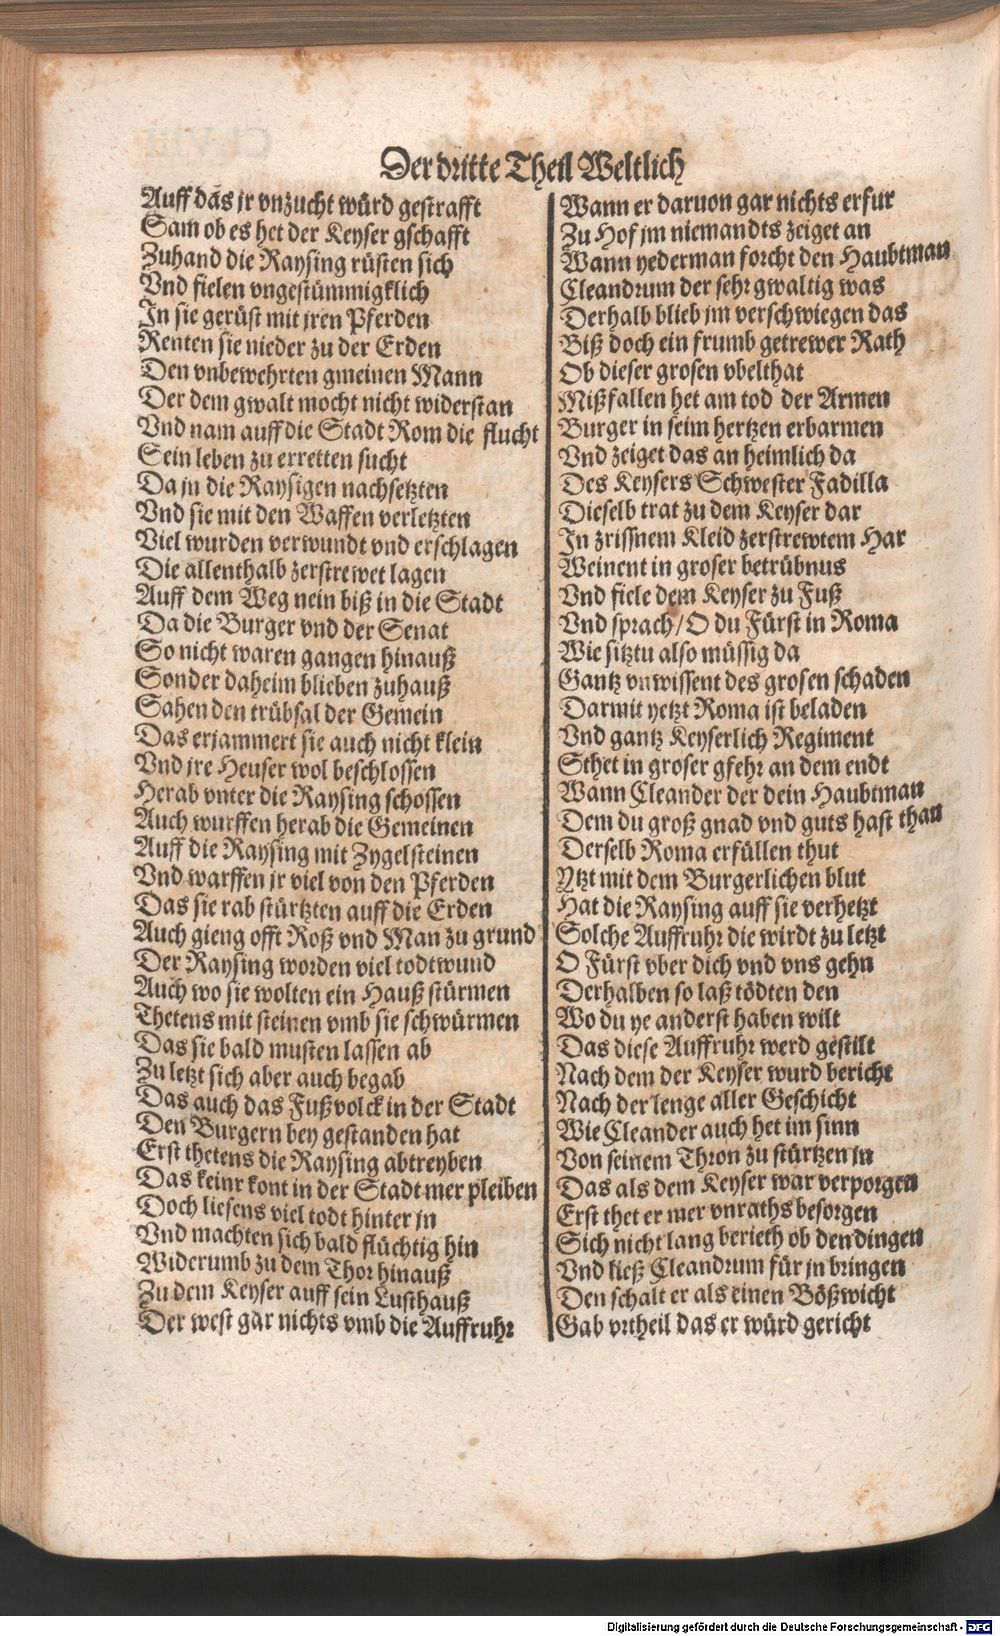 Der dritte Theil Weltlich
Auff das jr vnzucht würd gestrafft
Sam ob es het der Keyser gschafft
Zuhand die Raysing rüsten sich
Vnd fielen vngestümmigklich
In sie gerüst mit jren Pferden
Renten sie nieder zu der Erden
Den vnbewehrten gmeinen Mann
Der dem gwalt mocht nicht widerstan
Vnd nam auff die Stadt Rom die flucht
Sein leben zu erretten sucht
Da jn die Raysigen nachsetzten
Vnd sie mit den Waffen verletzten
Viel wurden verwundt vnd erschlagen
Die allenthalb zerstrewet lagen
Auff dem Weg nein biß in die Stadt
Da die Burger vnd der Senat
So nicht waren gangen hinauß
Sonder daheim blieben zuhauß
Sahen den trübsal der Gemein
Das erjammert sie auch nicht klein
Vnd jre Heuser wol beschlossen
Herab vnter die Raysing schossen
Auch wurffen herab die Gemeinen
Auff die Raysing mit Zygelsteinen
Vnd warffen jr viel von den Pferden
Das sie rab stürtzten auff die Erden
Auch gieng offt Roß vnd Man zu grund
Der Raysing worden viel todtwund
Auch wo sie wolten ein Hauß stürmen
Thetens mit steinen vmb sie schwürmen
Das sie bald musten lassen ab
Zu letzt sich aber auch begab
Das auch das Fußvolck in der Stadt
Den Burgern bey gestanden hat
Erst thetens die Raysing abtreyben
Das keinr kont in der Stadt mer pleiben
Doch liesens viel todt hinter jn
Vnd machten sich bald flüchtig hin
Widerumb zu dem Thor hinauß
Zu dem Keyser auff sein Lusthauß
Der west gar nichts vmb die Auffruhr
Wann er daruon gar nichts erfur
Zu Hof jm niemandts zeiget an
Wann yederman forcht den Haubtman
Cleandrum der sehr gwaltig was
Derhalb blieb jm verschwiegen das
Biß doch ein frumb getrewer Rath
Ob dieser grosen vbelthat
Mißfallen het am tod der Armen
Burger in seim hertzen erbarmen
Vnd zeiget das an heimlich da
Des Keysers Schwester Fadilla
Dieselb trat zu dem Keyser dar
In zrissnem Kleid zerstrewtem Har
Weinent in groser betrübnus
Vnd fiele dem Keyser zu Fuß
Vnd sprach/O du Fürst in Roma
Wie sitztu also müssig da
Gantz vnwissent des grosen schaden
Darmit yetzt Roma ist beladen
Vnd gantz Keyserlich Regiment
Sthet in groser gfehr an dem endt
Wann Cleander der dein Haubtman
Dem du groß gnad vnd guts hast than
Derselb Roma erfüllen thut
Ytzt mit dem Burgerlichen blut
Hat die Raysing auff sie verhetzt
Solche Auffruhr die wirdt zu letzt
O Fürst vber dich vnd vns gehn
Derhalben so laß tödten den
Wo du ye anderst haben wilt
Das diese Auffruhr werd gestilt
Nach dem der Keyser wurd bericht
Nach der lenge aller Geschicht
Wie Cleander auch het im sinn
Von seinem Thron zu stürtzen jn
Das als dem Keyser war verporgen
Erst thet er mer vnraths besorgen
Sich nicht lang berieth ob den dingen
Vnd ließ Cleandrum für jn bringen
Den schalt er als einen Bößwicht
Gab vrtheil das er würd gericht
Digitalisierung gefördert durch die Deutsche Forschungsgemeinschaft - DFG